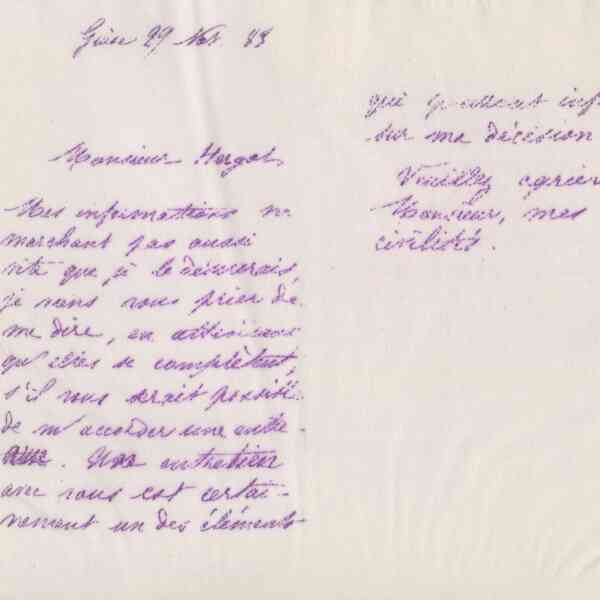 Guise 29 Nov. 83
Monsieur
Mes informations ne
marchant pas aussi
vite que je le désirerais,
je viens vous prier de
me dire, en attendant
qu'elles se complètent,
s'il vous serait possible
de m'accorder une entre-
. Un entretien
avec vous est certai-
nement un des éléments
qui peuvent inf
sur ma décision
Veuillez agréer
Monsieur, mes
civilités.